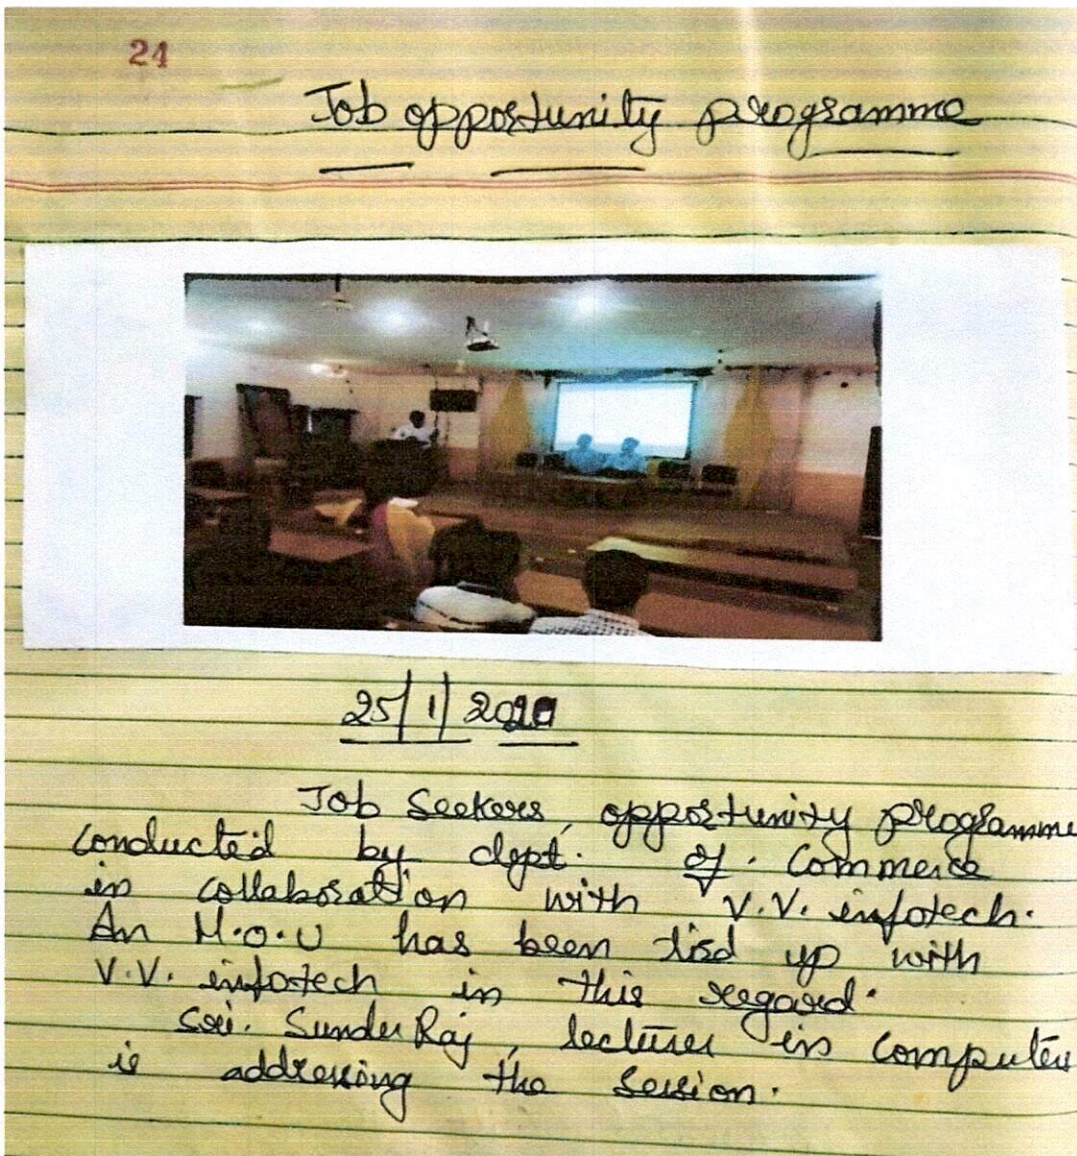 24
Job opportunity programme
25/1/2020
Job Seekers, opportunity programme
conducted by dept. of. Commerce
in collaboration with V.V. infotech.
An M.O.U has been tied up with
V.V. infotech in this regard.
Sri. Sunder Raj, lecturer in computer
is addressing the session.